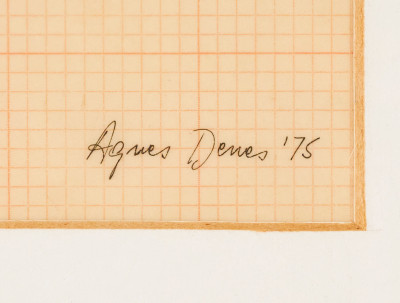 Agnes Denes '75